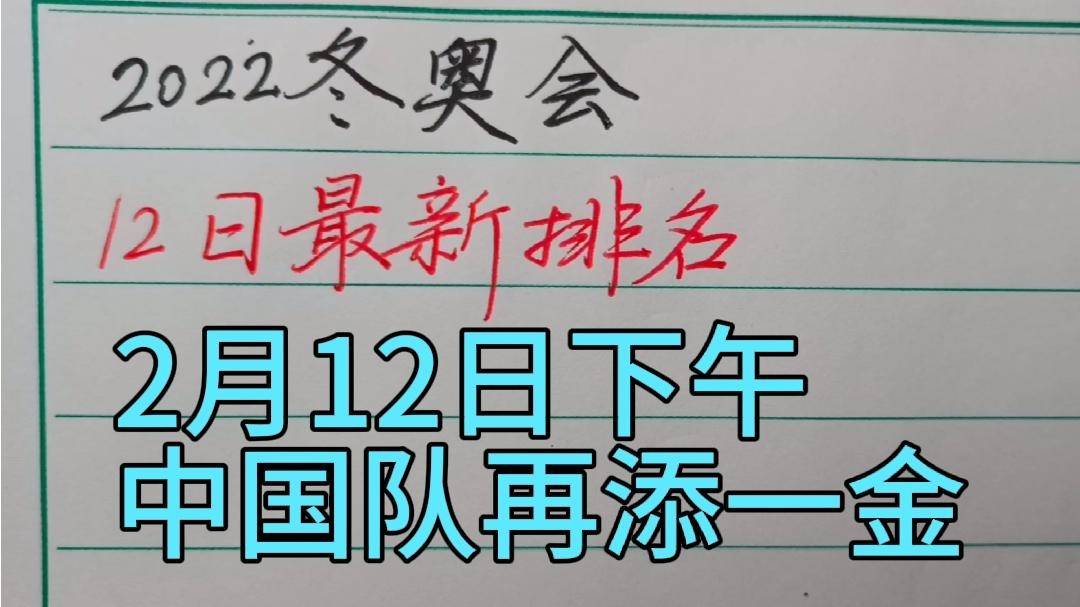 2022冬奥会
12日最新排名
2月12日下午
中国队再添一金